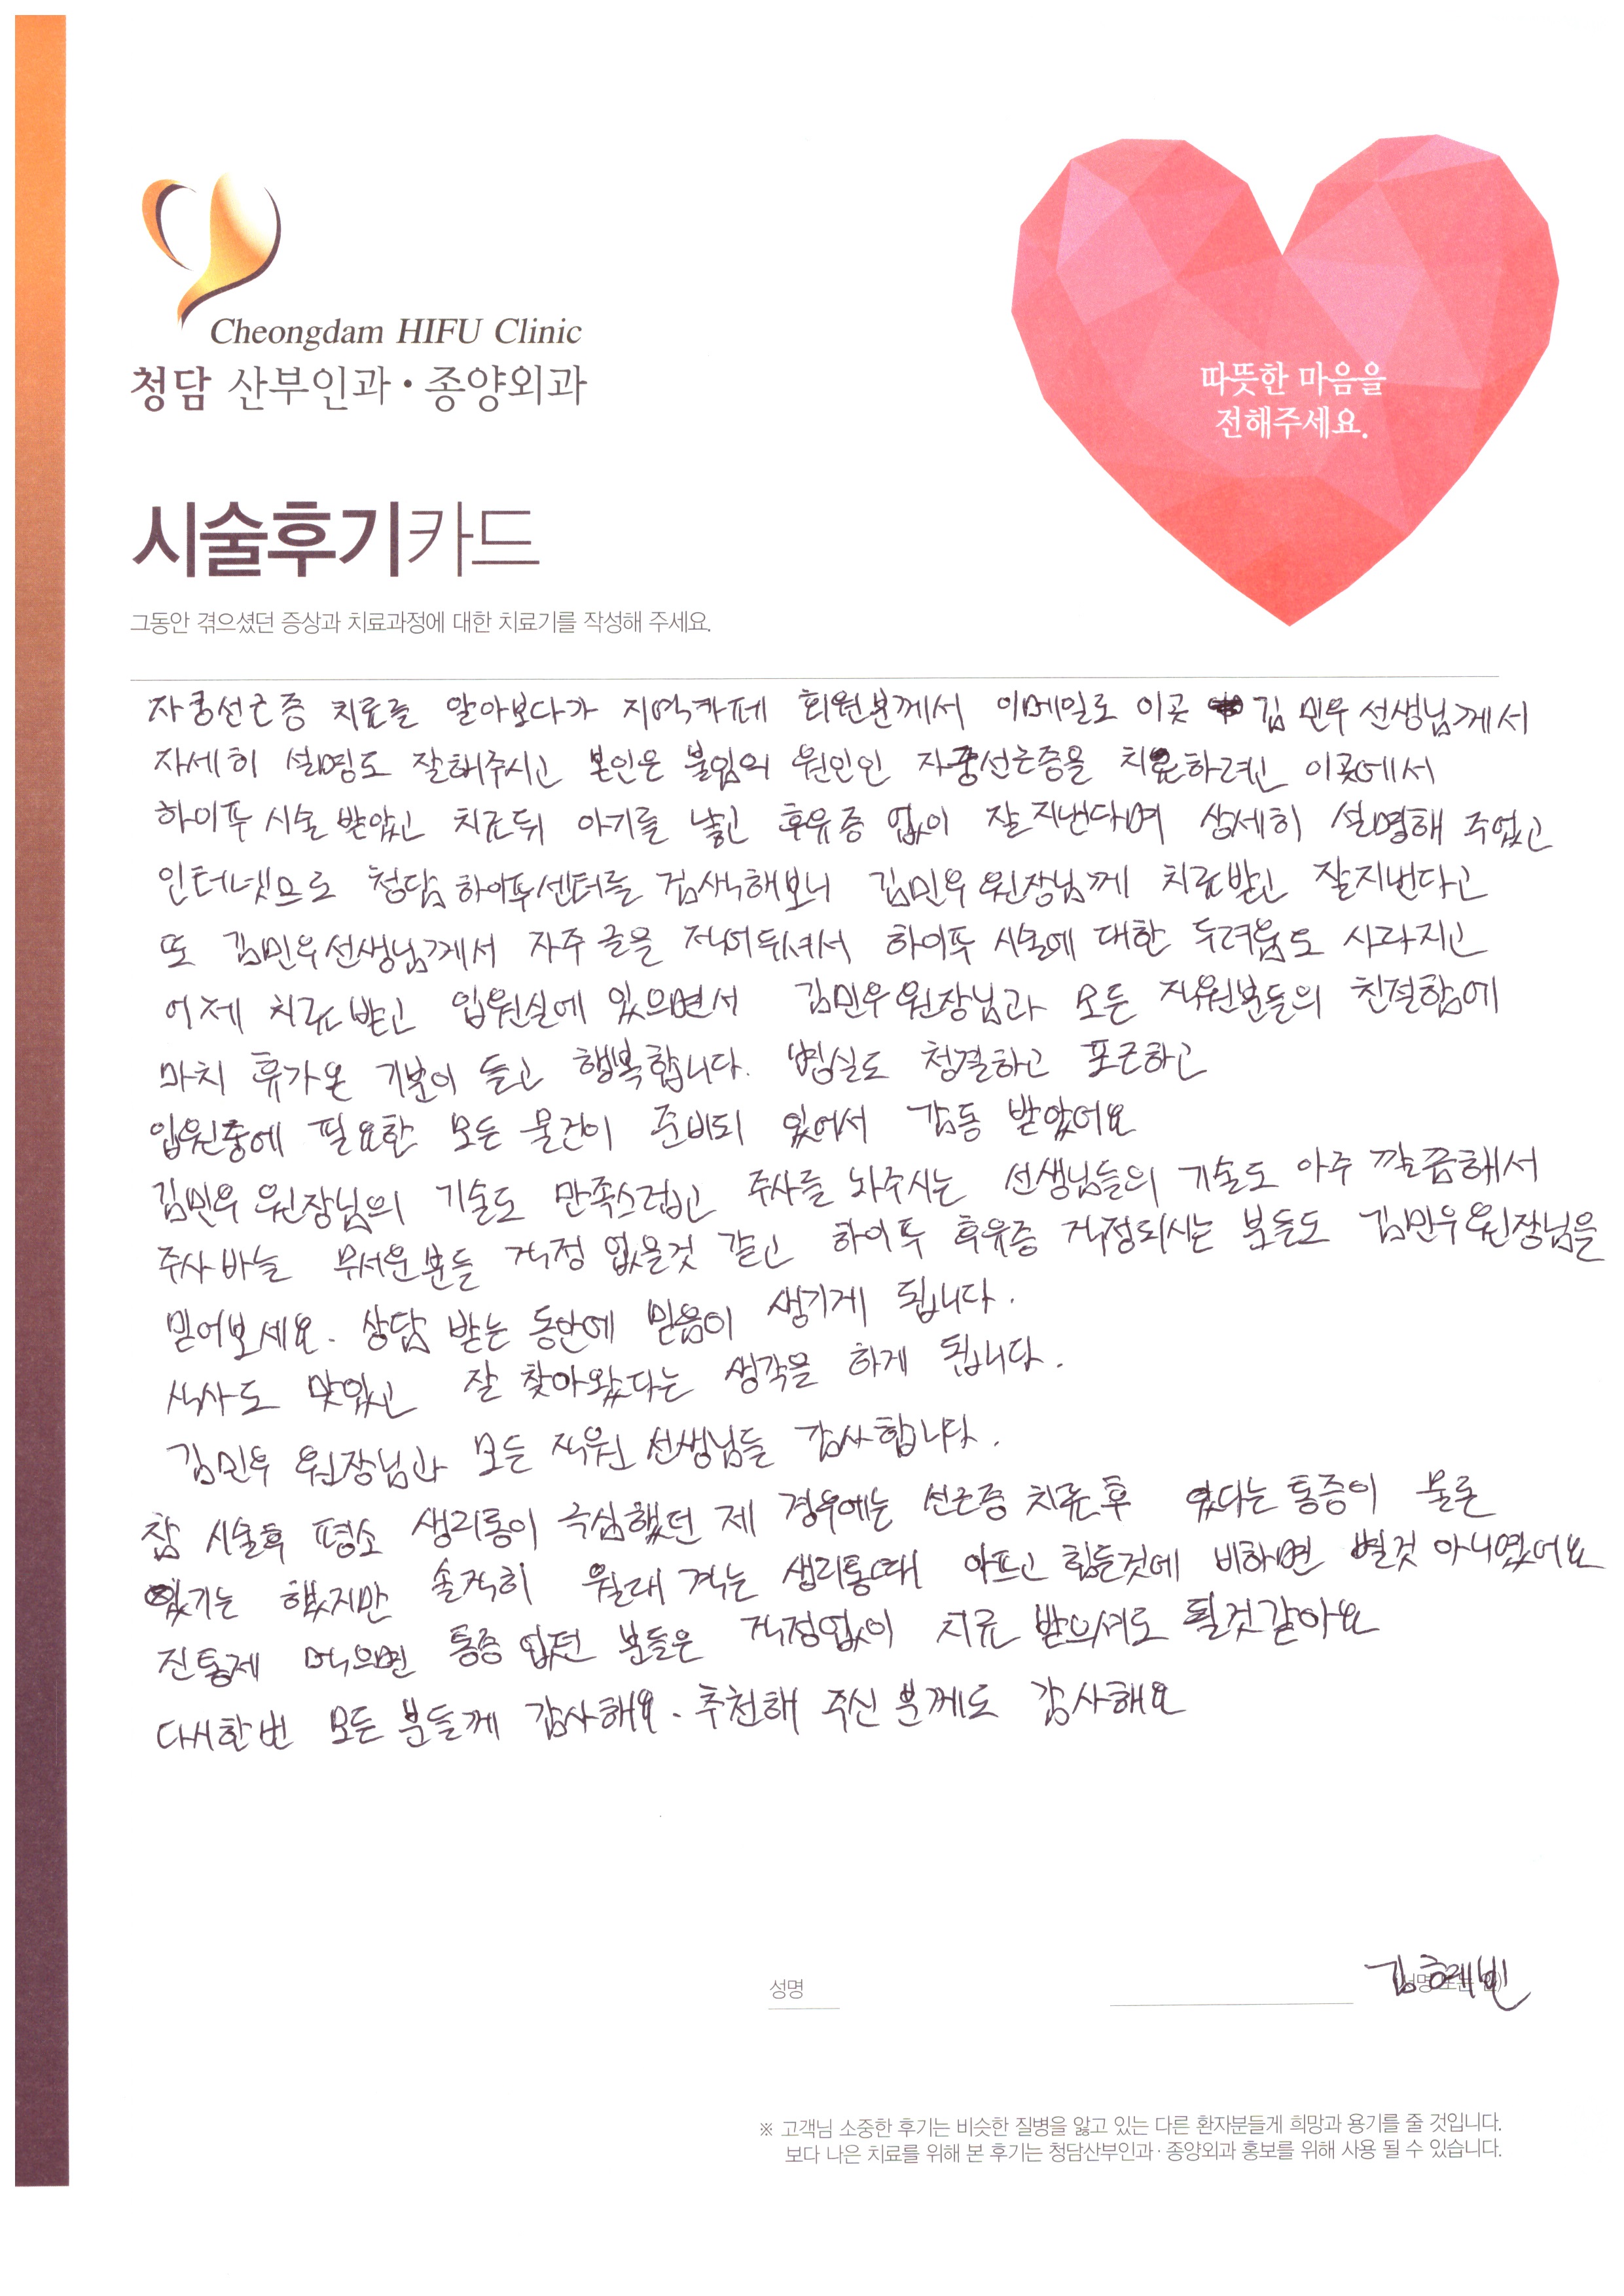 Cheongdam HIFU Clinic
청담 산부인과 · 종양외과
따뜻한 마음을
전해주세요.
시술후기카드
그동안 겪으셨던 증상과 치료과정에 대한 치료기를 작성해 주세요.
자궁선근증 치료를 알아보다가 지역카페 회원분께서 이메일로 이곳 김민우 선생님께서
자세히 설명도 잘해주시고 본인은 불임의 원인인 자궁선근증을 치료하려고 이곳에서
하이푸 시술 받았고 치료뒤 아기를 낳고 후유증 없이 잘 지낸다며 상세히 설명해 주었고
인터넷으로 청담 하이푸센터를 검색해보니 김민우 원장님께 치료받고 잘지낸다고
또 김민우선생님께서 자주 글을 적어두셔서 하이푸 시술에 대한 두려움도 사라지고
어제 치료받고 입원실에 있으면서 김민우 원장님과 모든 직원분들의 친절함에
마치 휴가온 기분이 들고 행복합니다. 병실도 청결하고 포근하고
입원중에 필요한 모든 물건이 준비되 있어서 감동 받았어요
김민우 원장님의 기술도 만족스럽고 주사를 놔주시는 선생님들의 기술도 아주 깔끔해서
주사 바늘 무서운분들 걱정 없을것 같고 하이푸 후유증 걱정되시는 분들도 김민우원장님을
믿어보세요. 상담 받는 동안에 믿음이 생기게 됩니다.
식사도 맛있고 잘 찾아왔다는 생각을 하게 됩니다.
김민우 원장님과 모든 직원 선생님들 감사합니다.
참 시술후 평소 생리통이 극심했던 제 경우에는 선근증 치료후 있다는 통증이 물론
있기는 했지만 솔직히 월래 겪는 생리통때 아프고 힘든것에 비하면 별것 아니였어요
진통제 먹으면 통증 없던 분들은 걱정없이 치료 받으셔도 될것같아요
다시한번 모든 분들께 감사해요. 추천해 주신 분께도 감사해요
성명 김혜빈
※ 고객님 소중한 후기는 비슷한 질병을 앓고 있는 다른 환자분들게 희망과 용기를 줄 것입니다.
보다 나은 치료를 위해 본 후기는 청담산부인과 · 종양외과 홍보를 위해 사용 될 수 있습니다.